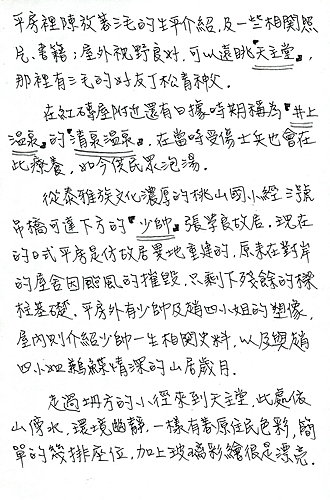 平房裡陳放著三毛的生平介紹,及一些相關照
片、書籍;屋外視野良好,可以遠眺『天主堂』,
那裡有三毛的好友丁松青神父。
在紅磚屋附近還有日據時期稱為『井上
溫泉』的『清泉溫泉』,在當時受傷士兵也會在
此療養,如今供民眾泡湯。
從泰雅族文化濃厚的桃山國小經3號
吊橋可達下方的『少帥』張學良故居。現在
的日式平房是仿故居異地重建的,原來在對岸
的屋舍因颱風的摧毀,只剩下殘餘的樑
柱基礎。平房外有少帥及趙四小姐的塑像,
屋內則介紹少帥一生相關史料,以及與趙
四小姐鶼鰈情深的山居歲月。
走過坍方的小徑來到天主堂,此處依
山傍水,環境幽靜,一樣有著原住民色彩,簡
單的幾排座位,加上玻璃彩繪很是漂亮。